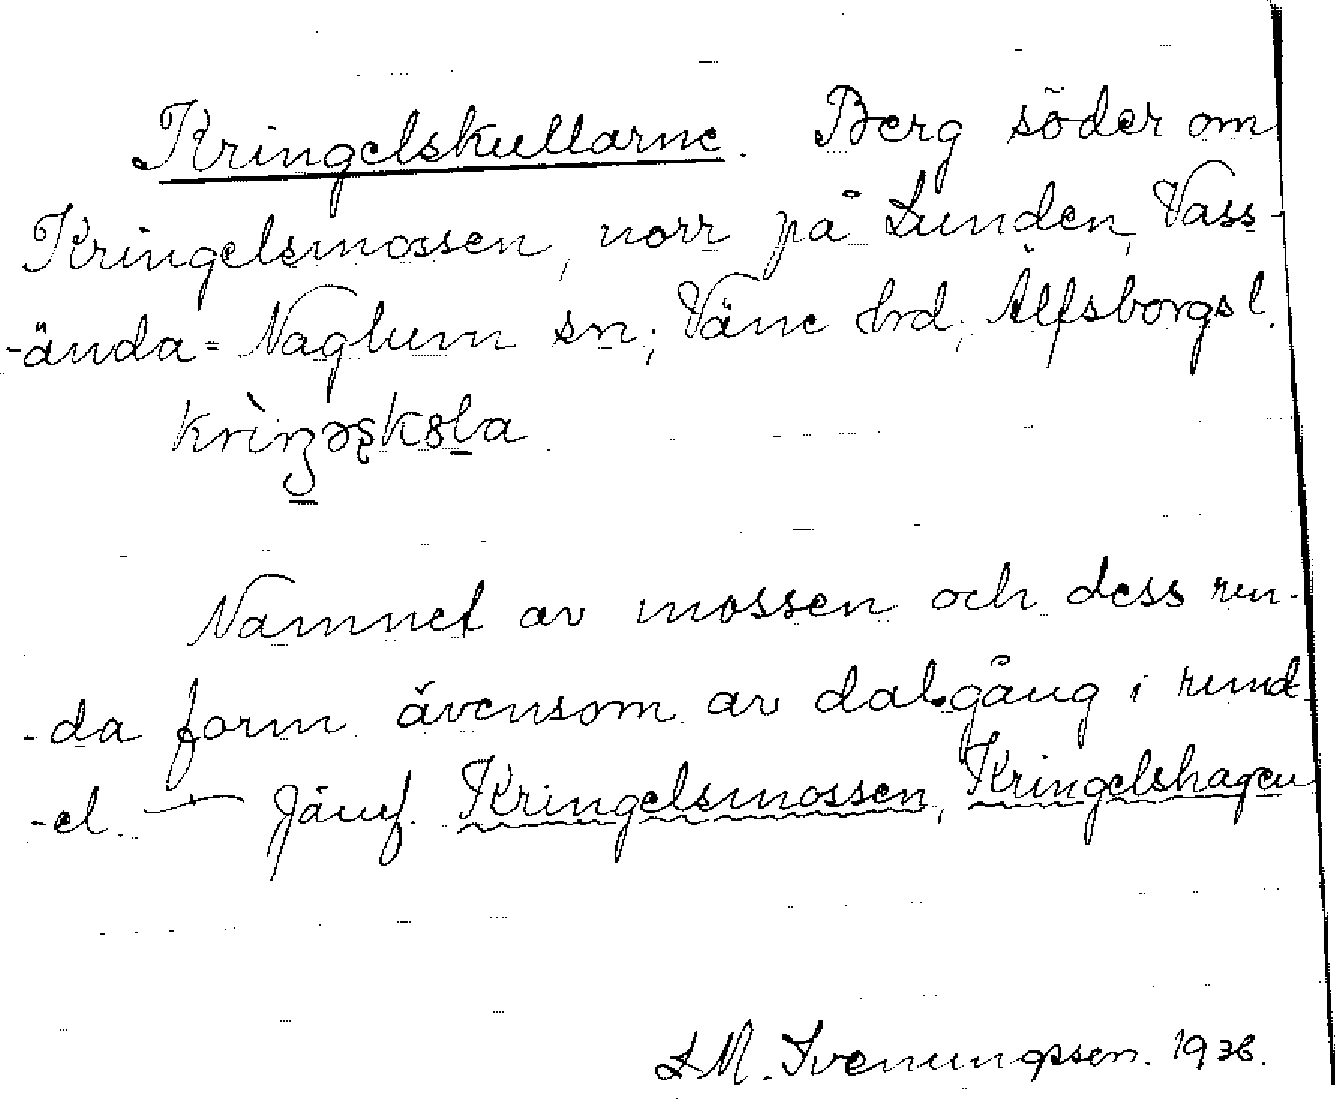 Kringelskullarne. Berg söder om
Kringelsmossen, norr på Lunden, Vass-
-ända-Naglum sn; Väne hrd; Älfsborgs l.
Namnet av mossen och dess run-
-da form ävensom av dalgång i rund-
-el. — Jämf. Kringelsmossen, Kringelshagen
L M. Svenungsson. 1936.